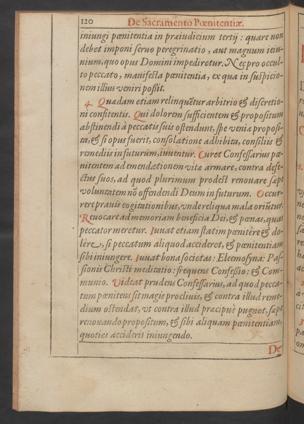 120 De Sacramento Pœnitentiæ.
iniungi pœnitentia in præiudicium tertij: quare non
debet imponi servo peregrinatio, aut magnum ieiu-
nium, quo opus Domini impediretur. Nec pro occul-
to peccato, manifesta pœnitentia, ex qua in suspicio-
nem illius veniri possit.
4. Quædam etiam relinquētur arbitrio & discretio-
ni confitentis. Qui dolorem sufficientem & propositum
abstinendi à peccatis suis ostendunt, spe venia proposi-
ta, & si opus fuerit, consolatione adhibita, consiliis &
remediis in futurum, iuventur. Curet Confessarius pœ-
nitentem ad emendationem vitæ armare, contra defe-
ctus suos, ad quod plurimum prodest renovare sæpe
voluntatem nō offendendi Deum in futurum. Occur-
rere pravis cogitationibus, unde reliqua mala oriūtur.
Revocare ad memoriam beneficia Dei, & pœnas, quas
peccator meretur. Iuvat etiam statim pœnitēre & do-
lire, si peccatum aliquod accideret, & pœnitentiam
sibi iniungere. Iuvat bona societas: Eleemosyna: Pas-
sionis Christi meditatio: frequens Confessio: & Com-
munio. Videat prudens Confessarius, ad quod pecca-
tum pœnitens sit magis proclivis, & contra illud reme-
dium ostendat, ut contra illud præcipuè pugnet, sæpe
renovando propositum, & sibi aliquam pœnitentiam,
quoties acciderit iniungendo.
De